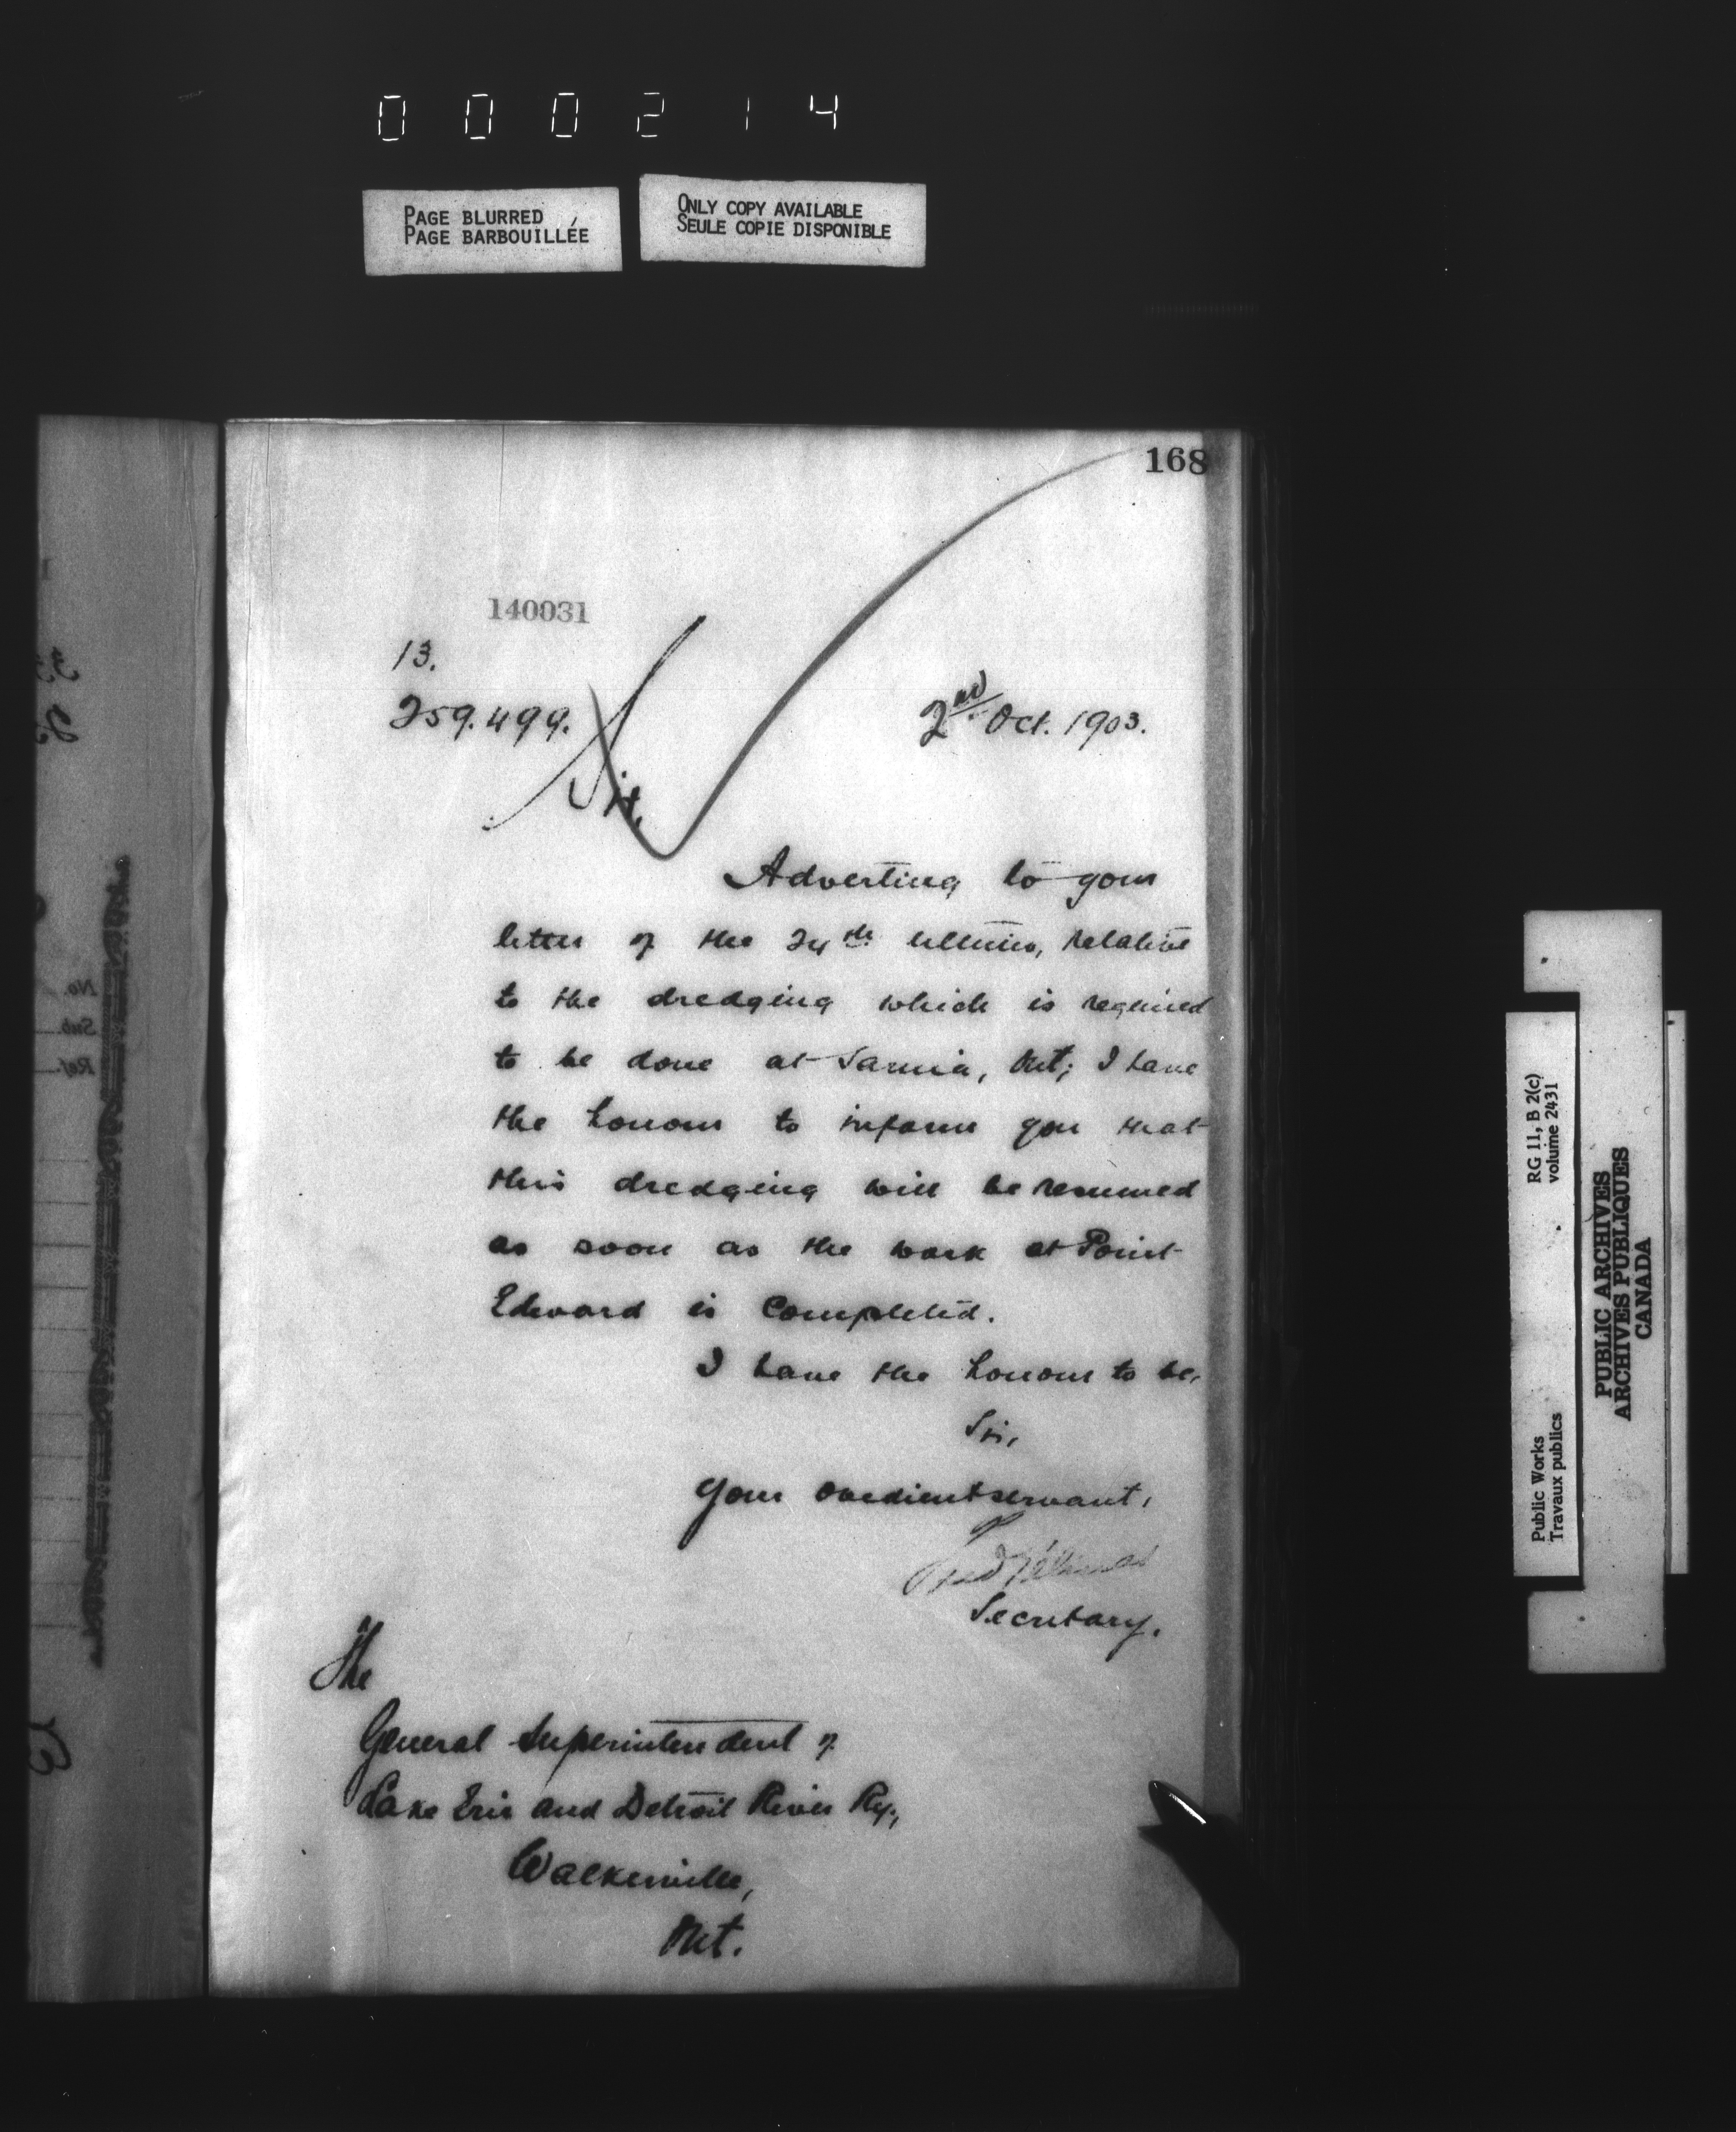 000214
PAGE BLURRED
PAGE BARBOUILLÉE
ONLY COPY AVAILABLE
SEULE COPIE DISPONIBLE
168
140031
13.
259.499.
2nd Oct. 1903.
Sir,
Adverting to your
letter of the 24th ultimo, relative
to the dredging which is required
to be done at Sarnia, Ont; I have
the honour to inform you that
this dredging will be resumed
as soon as the work at Point
Edward is completed.
I have the honour to be,
Sir,
Your obedient servant,
Fred
Secretary.
The
General Superintendent of
Lake Erie and Detroit River Ry.,
Walkerville,
Ont.
No.
Sub.
Ref.
RG 11, B 2(c)
volume 2431
Public Works
Travaux publics
PUBLIC ARCHIVES
ARCHIVES PUBLIQUES
CANADA